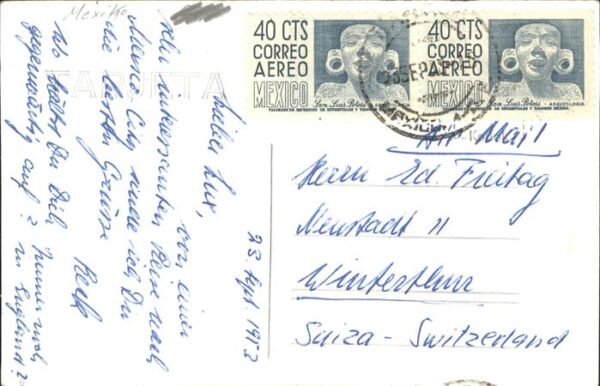 Mexiko
TARJETA
23. Sept. 1953
Lieber Lux,
von einer
sehr interessanten Reise nach
Mexico-City sende ich Dir
die besten Grüsse
Wo hältst Du Dich
gegenwärtig auf? Immer noch
in England?
40 CTS
CORREO
AEREO
MEXICO
San Luis Potosi - ARQUEOLOGIA
40 CTS
CORREO
AEREO
MEXICO
San Luis Potosi - ARQUEOLOGIA
SEP
Air Mail
Herrn Ed. Freitag
Neustadt 11
Winterthur
Suiza - Switzerland